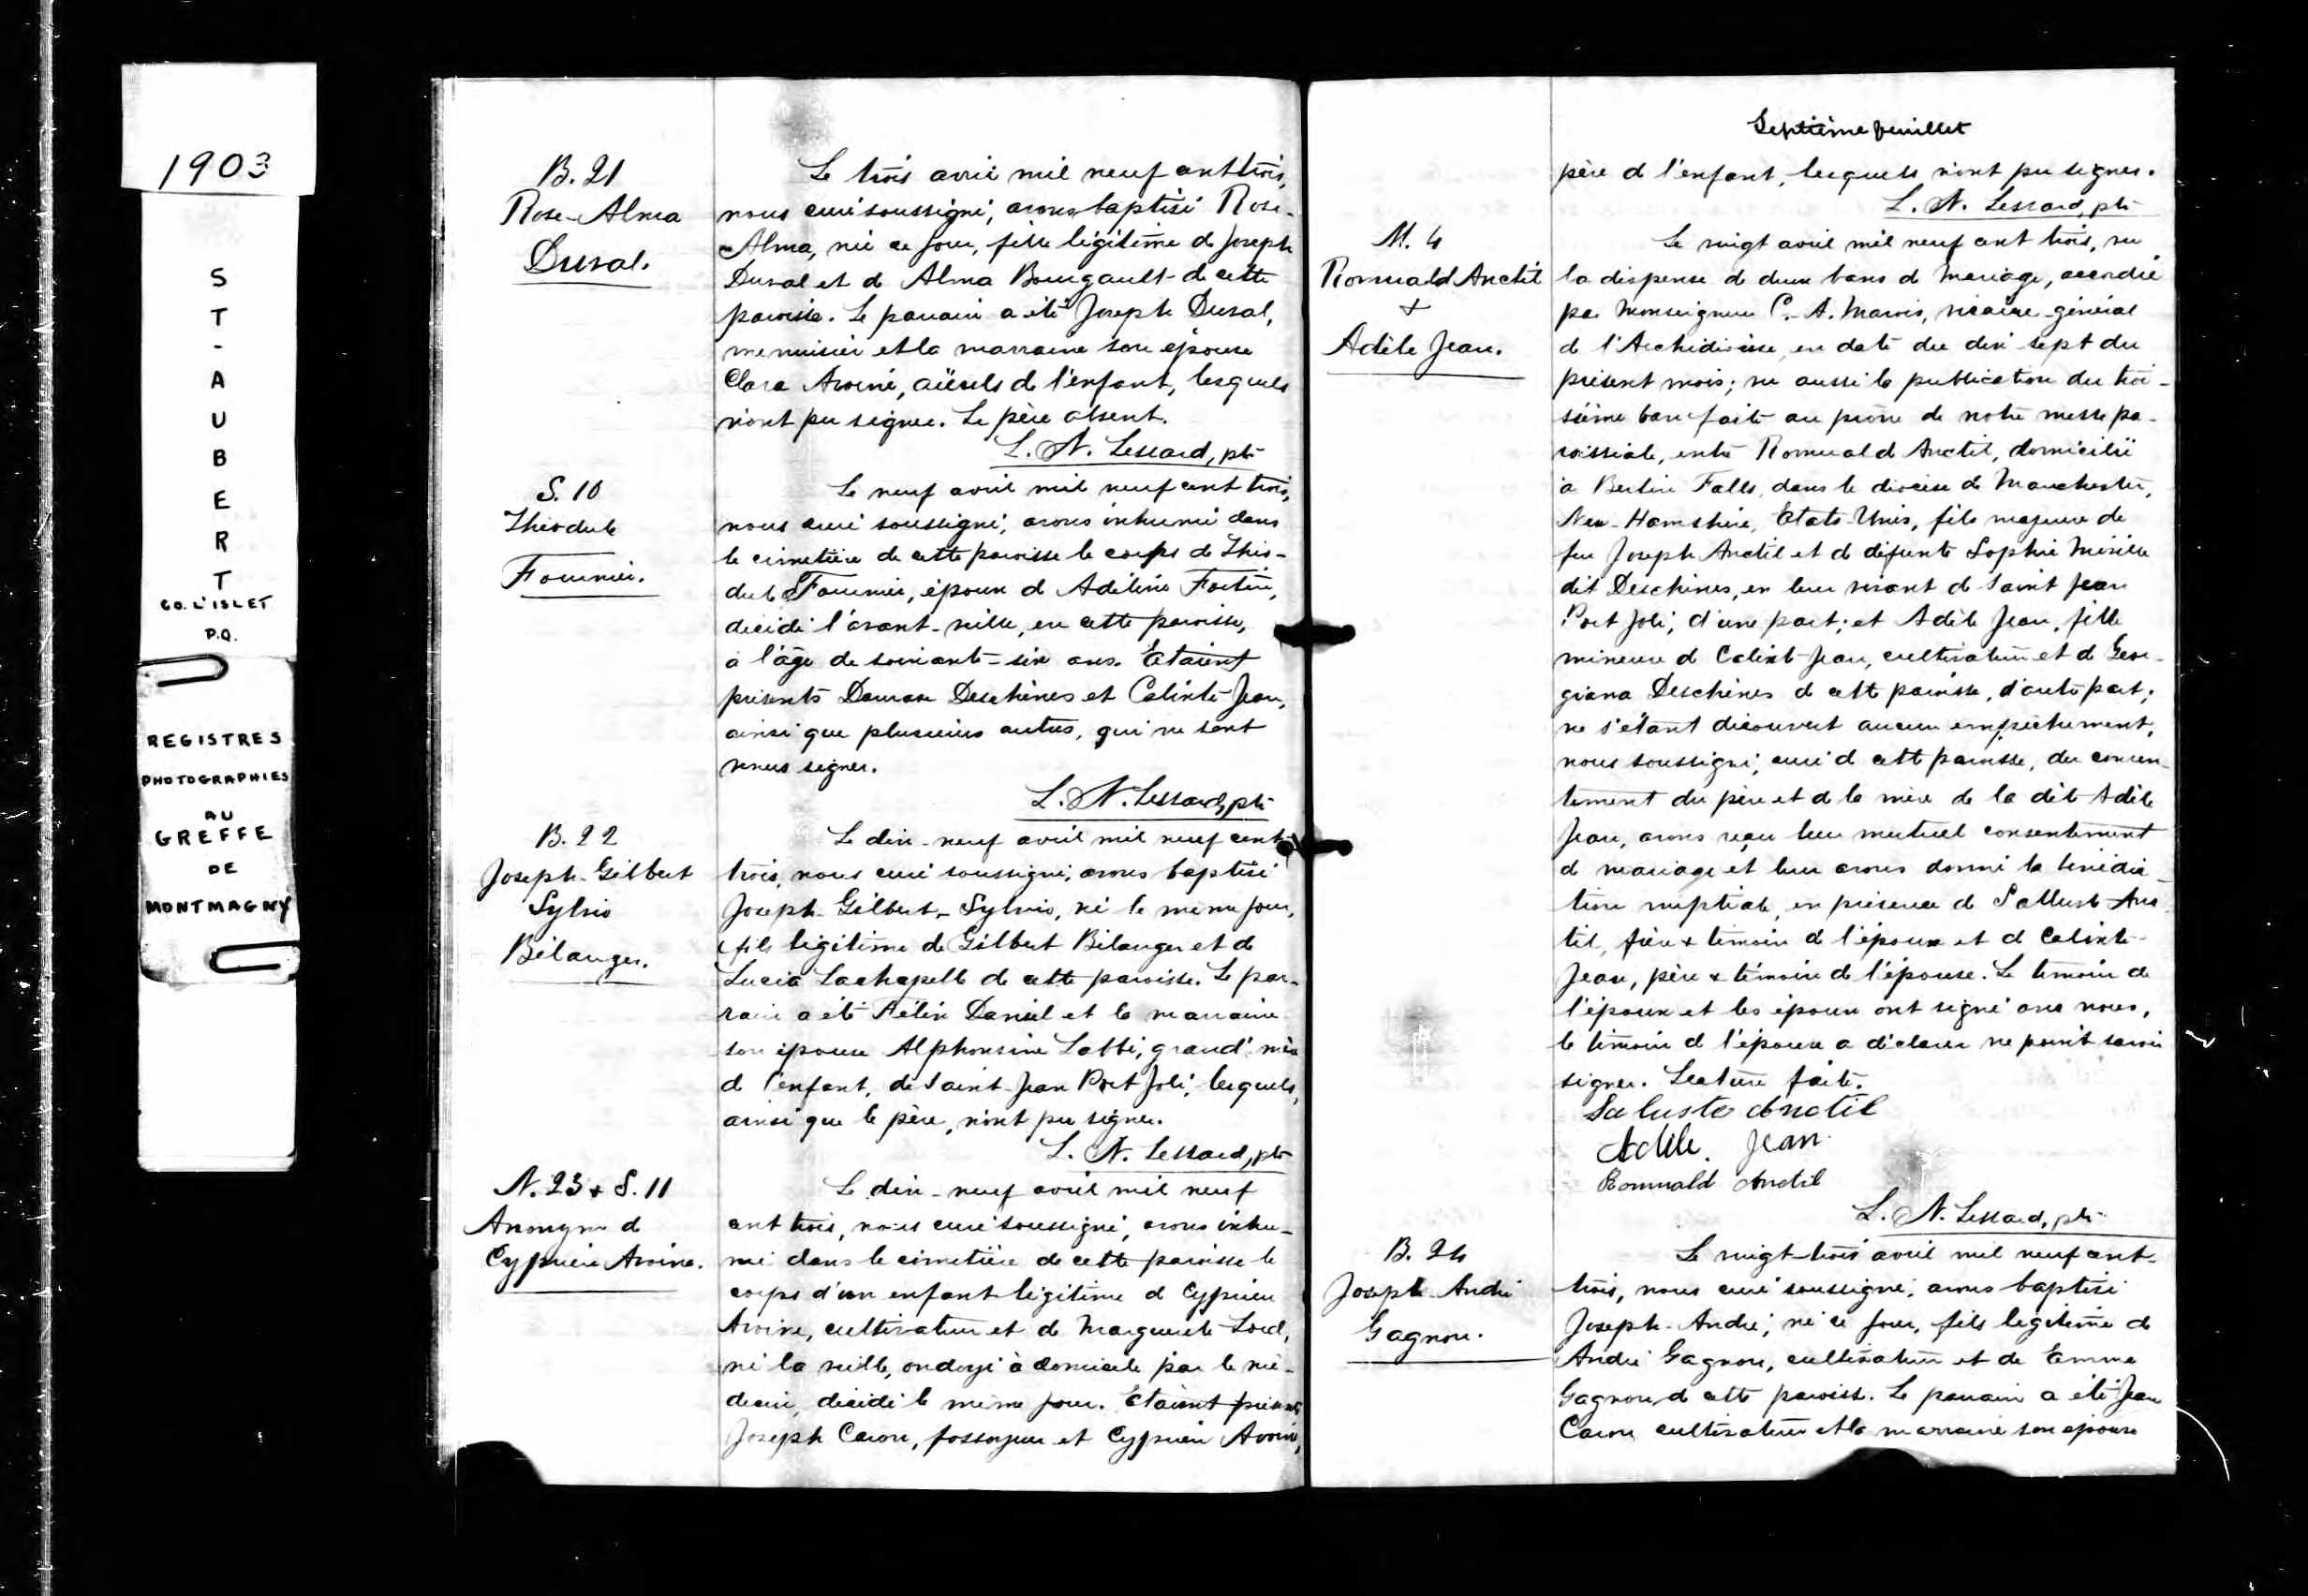 1903
S
T
-
A
U
B
E
R
T
CO. L'ISLET
P.Q.
REGISTRES
PHOTOGRAPHIES
AU
GREFFE
DE
MONTMAGNY
B. 21
Rose-Alma
Duval.
Le trois avril mil neuf cent trois,
nous curé soussigné, avons baptisé Rose-
Alma, née ce jour, fille légitime de Joseph
Duval et de Alma Bourgault de cette
paroisse. Le parrain a été Joseph Duval,
menuisier et la marraine son épouse
Clara Avoine, aïeuls de l'enfant, lesquels
n'ont pu signer. Le père absent.
L. N. Lessard, ptr
S. 10
Théodule
Fournier.
Le neuf avril mil neuf cent trois,
nous curé soussigné, avons inhumé dans
le cimetière de cette paroisse le corps de Théo-
dule Fournier, époux de Adéline Fortin,
décédé l'avant-veille, en cette paroisse,
à l'âge de soixante-six ans. Etaient
présents Damase Deschènes et Calixte Jean,
ainsi que plusieurs autres, qui ne sont
venus signer.
L. N. Lessard, ptr
B. 22
Joseph-Gilbert
Sylvio
Bélanger.
Le dix-neuf avril mil neuf cent
trois, nous curé soussigné, avons baptisé
Joseph-Gilbert-Sylvio, né le même jour,
fils légitime de Gilbert Bélanger et de
Lucia Lachapelle de cette paroisse. Le par-
rain a été Félix Daniel et la marraine
son épouse Alphonsine Labbé, grand'mère
de l'enfant, de Saint-Jean Port Joli, lesquels,
ainsi que le père, n'ont pu signer.
L. N. Lessard, ptr
N. 23 + S. 11
Anonyme de
Cyprien Avoine.
Le dix-neuf avril mil neuf
cent trois, nous curé soussigné, avons inhu-
mé dans le cimetière de cette paroisse le
corps d'un enfant légitime de Cyprien
Avoine, cultivateur et de Marguerite Lord,
né la veille, ondoyé à domicile par le mé-
decin, décédé le même jour. Etaient présents
Joseph Caron, fossoyeur et Cyprien Avoine,
Septième feuillet
père de l'enfant, lesquels n'ont pu signer.
L. N. Lessard, ptr
M. 4
Romuald Anctil
+
Adèle Jean.
Le vingt avril mil neuf cent trois, vu
la dispense de deux bans de mariage, accordée
par Monseigneur C.-A. Marois, vicaire-général
de l'Archidiocèse, en date du dix-sept du
présent mois; vu aussi la publication du troi-
sième ban faite au prône de notre messe pa-
roissiale, entre Romuald Anctil, domicilié
à Berlin Falls, dans le diocèse de Manchester,
New-Hamshire, Etats-Unis, fils majeur de
feu Joseph Anctil et de défunte Sophie Miville
dit Deschènes, en leur vivant de Saint Jean
Port Joli, d'une part; et Adèle Jean, fille
mineure de Calixte Jean, cultivateur et de Geor-
giana Deschènes de cette paroisse, d'autre part;
ne s'étant découvert aucun empêchement,
nous soussigné, curé de cette paroisse, du consen-
tement du père et de la mère de la dite Adèle
Jean, avons reçu leur mutuel consentement
de mariage et leur avons donné la bénédic-
tion nuptiale, en présence de Salluste Anc-
til, frère & témoin de l'époux et de Calixte
Jean, père & témoin de l'épouse. Le témoin de
l'époux et les époux ont signé avec nous,
le témoin de l'épouse a déclaré ne point savoir
signer. Lecture faite.
Saluste Anctil
Adèle. Jean.
Romuald Anctil
L. N. Lessard, ptr
B. 24
Joseph André
Gagnon.
Le vingt-trois avril mil neuf cent-
trois, nous curé soussigné, avons baptisé
Joseph-André, né ce jour, fils légitime de
André Gagnon, cultivateur et de Emma
Gagnon de cette paroisse. Le parrain a été Jean
Caron cultivateur et la marraine son épouse